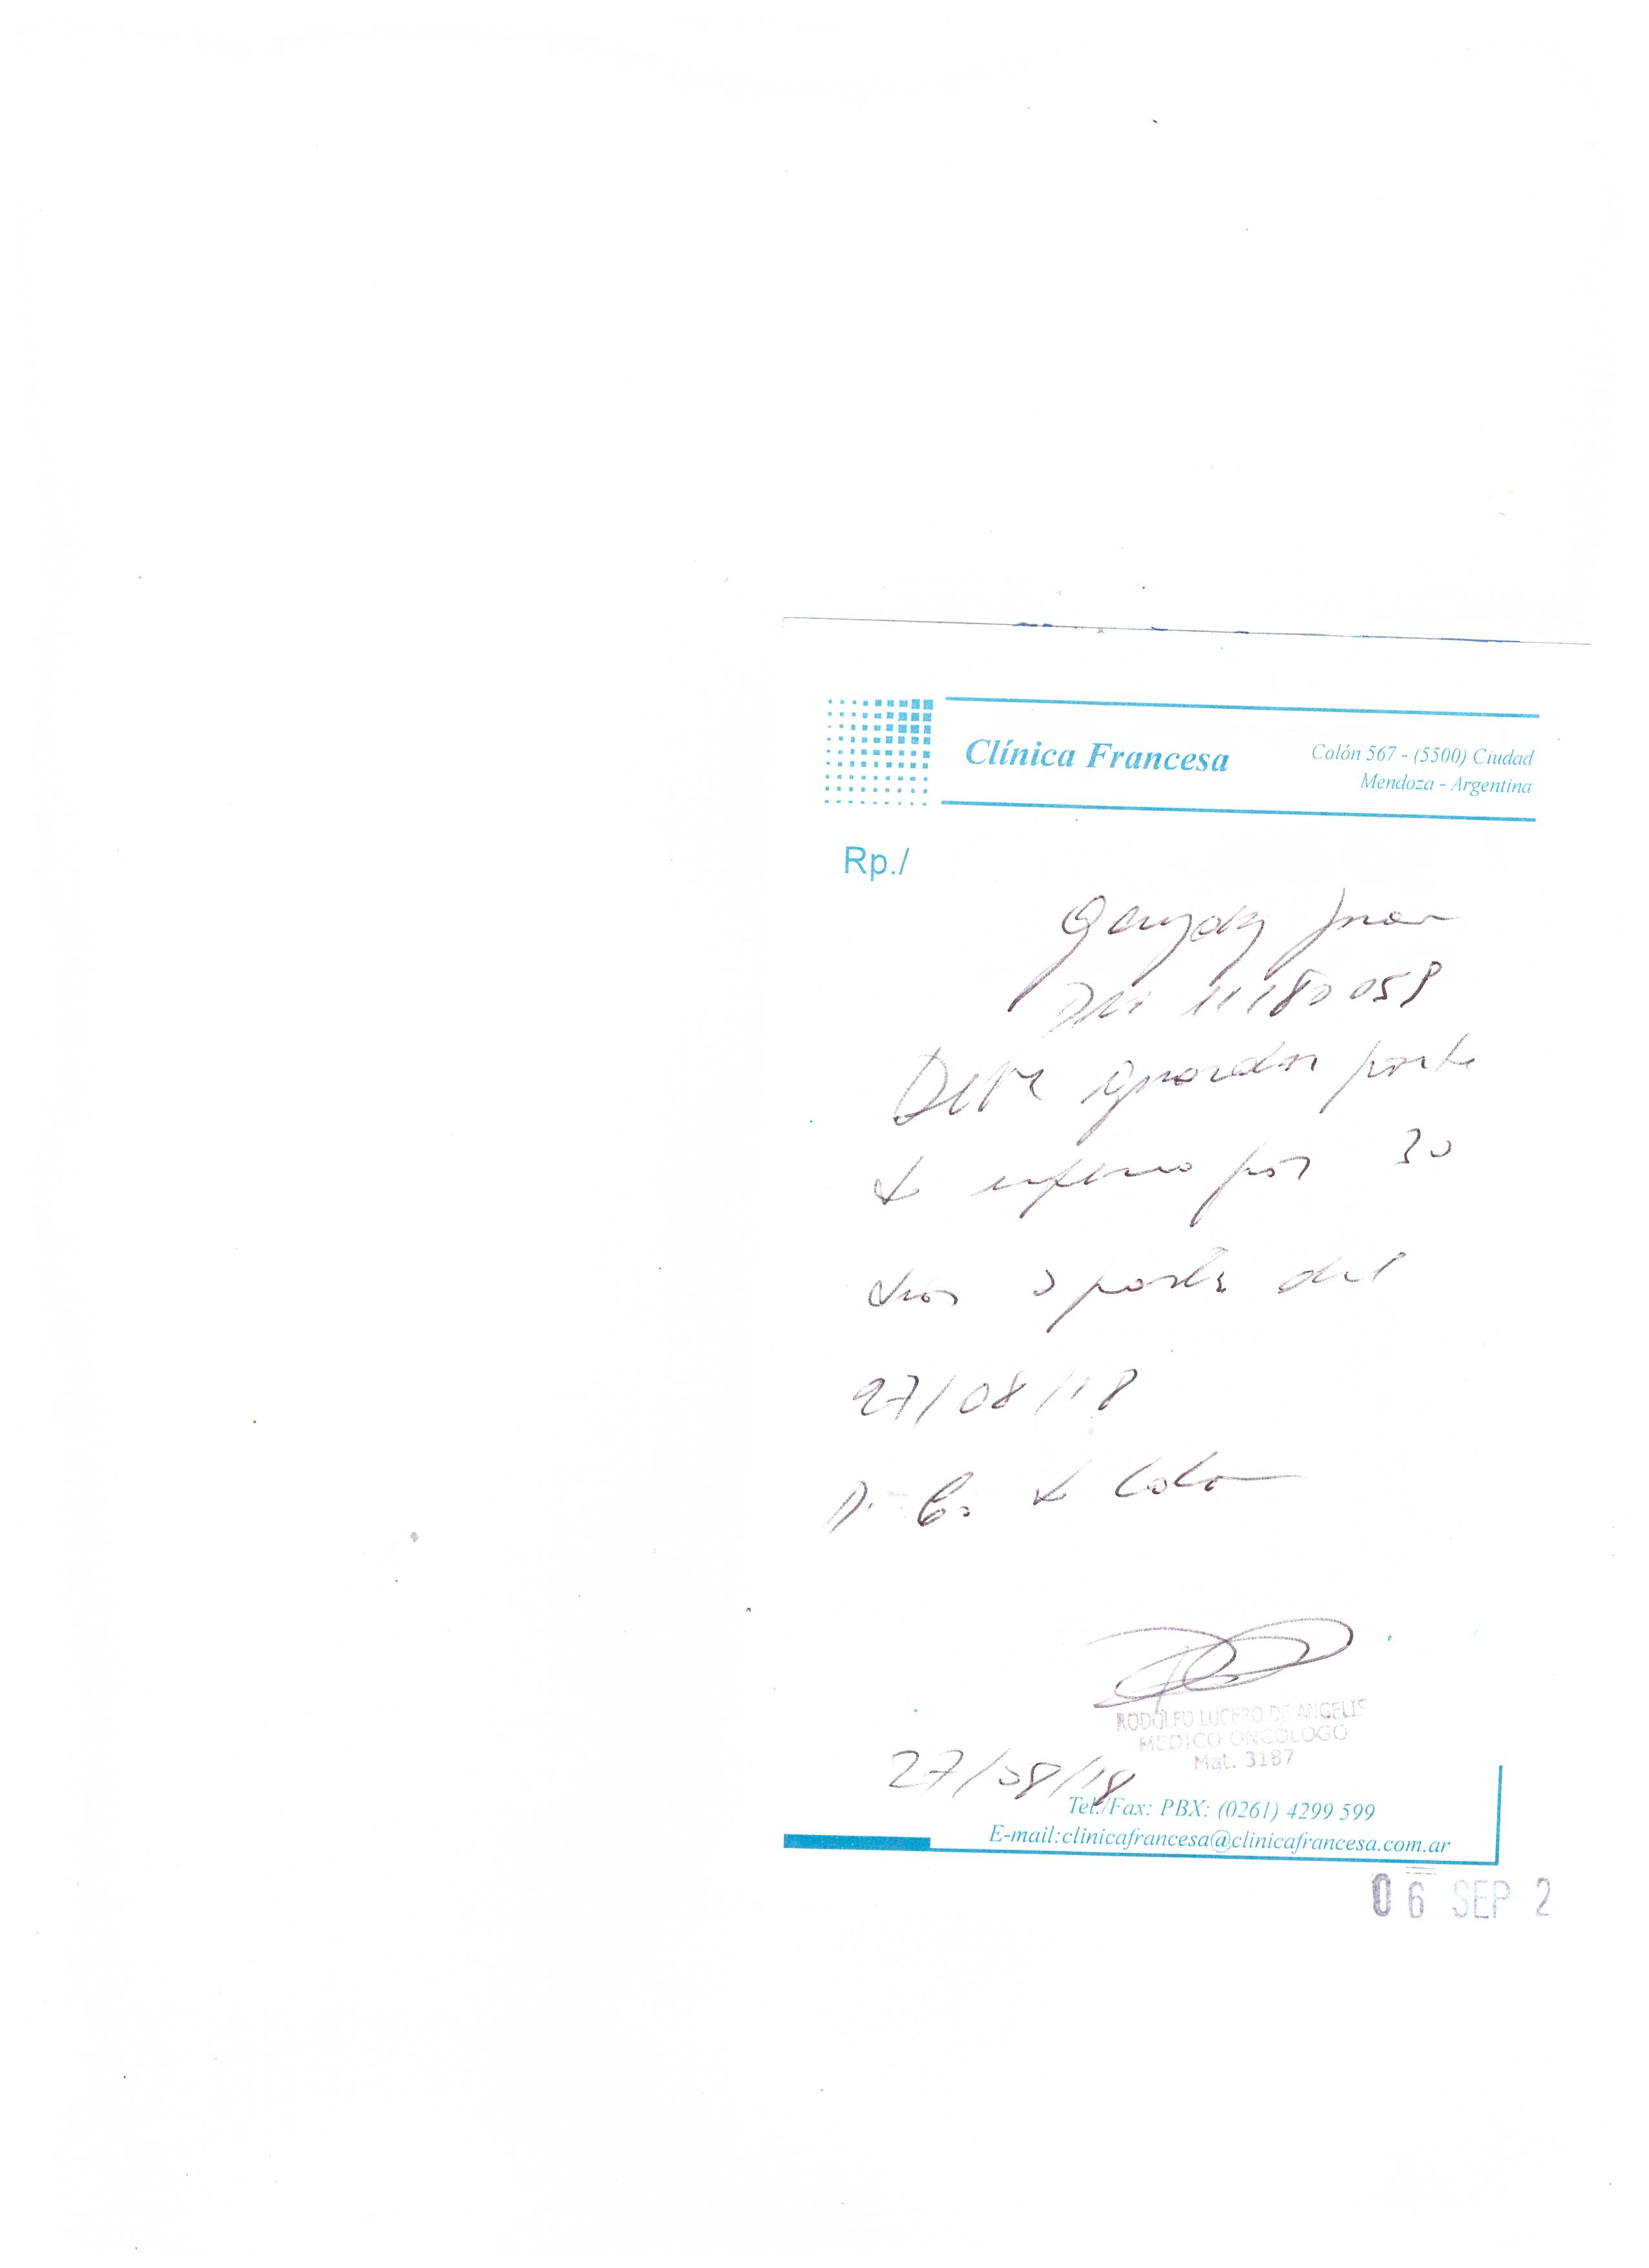 Clínica Francesa
Colón 567 - (5500) Ciudad
Mendoza - Argentina
Rp./
Gonzalez Juan
DNI 11180059
Debe guardar parte
de enfermo por 30
dias a partir del
27/08/18
D. Ca de Colon
RODOLFO LUCERO DE ANGELIS
MEDICO ONCOLOGO
Mat. 3187
27/08/18
Tel./Fax: PBX: (0261) 4299 599
E-mail:clinicafrancesa@clinicafrancesa.com.ar
06 SEP 2